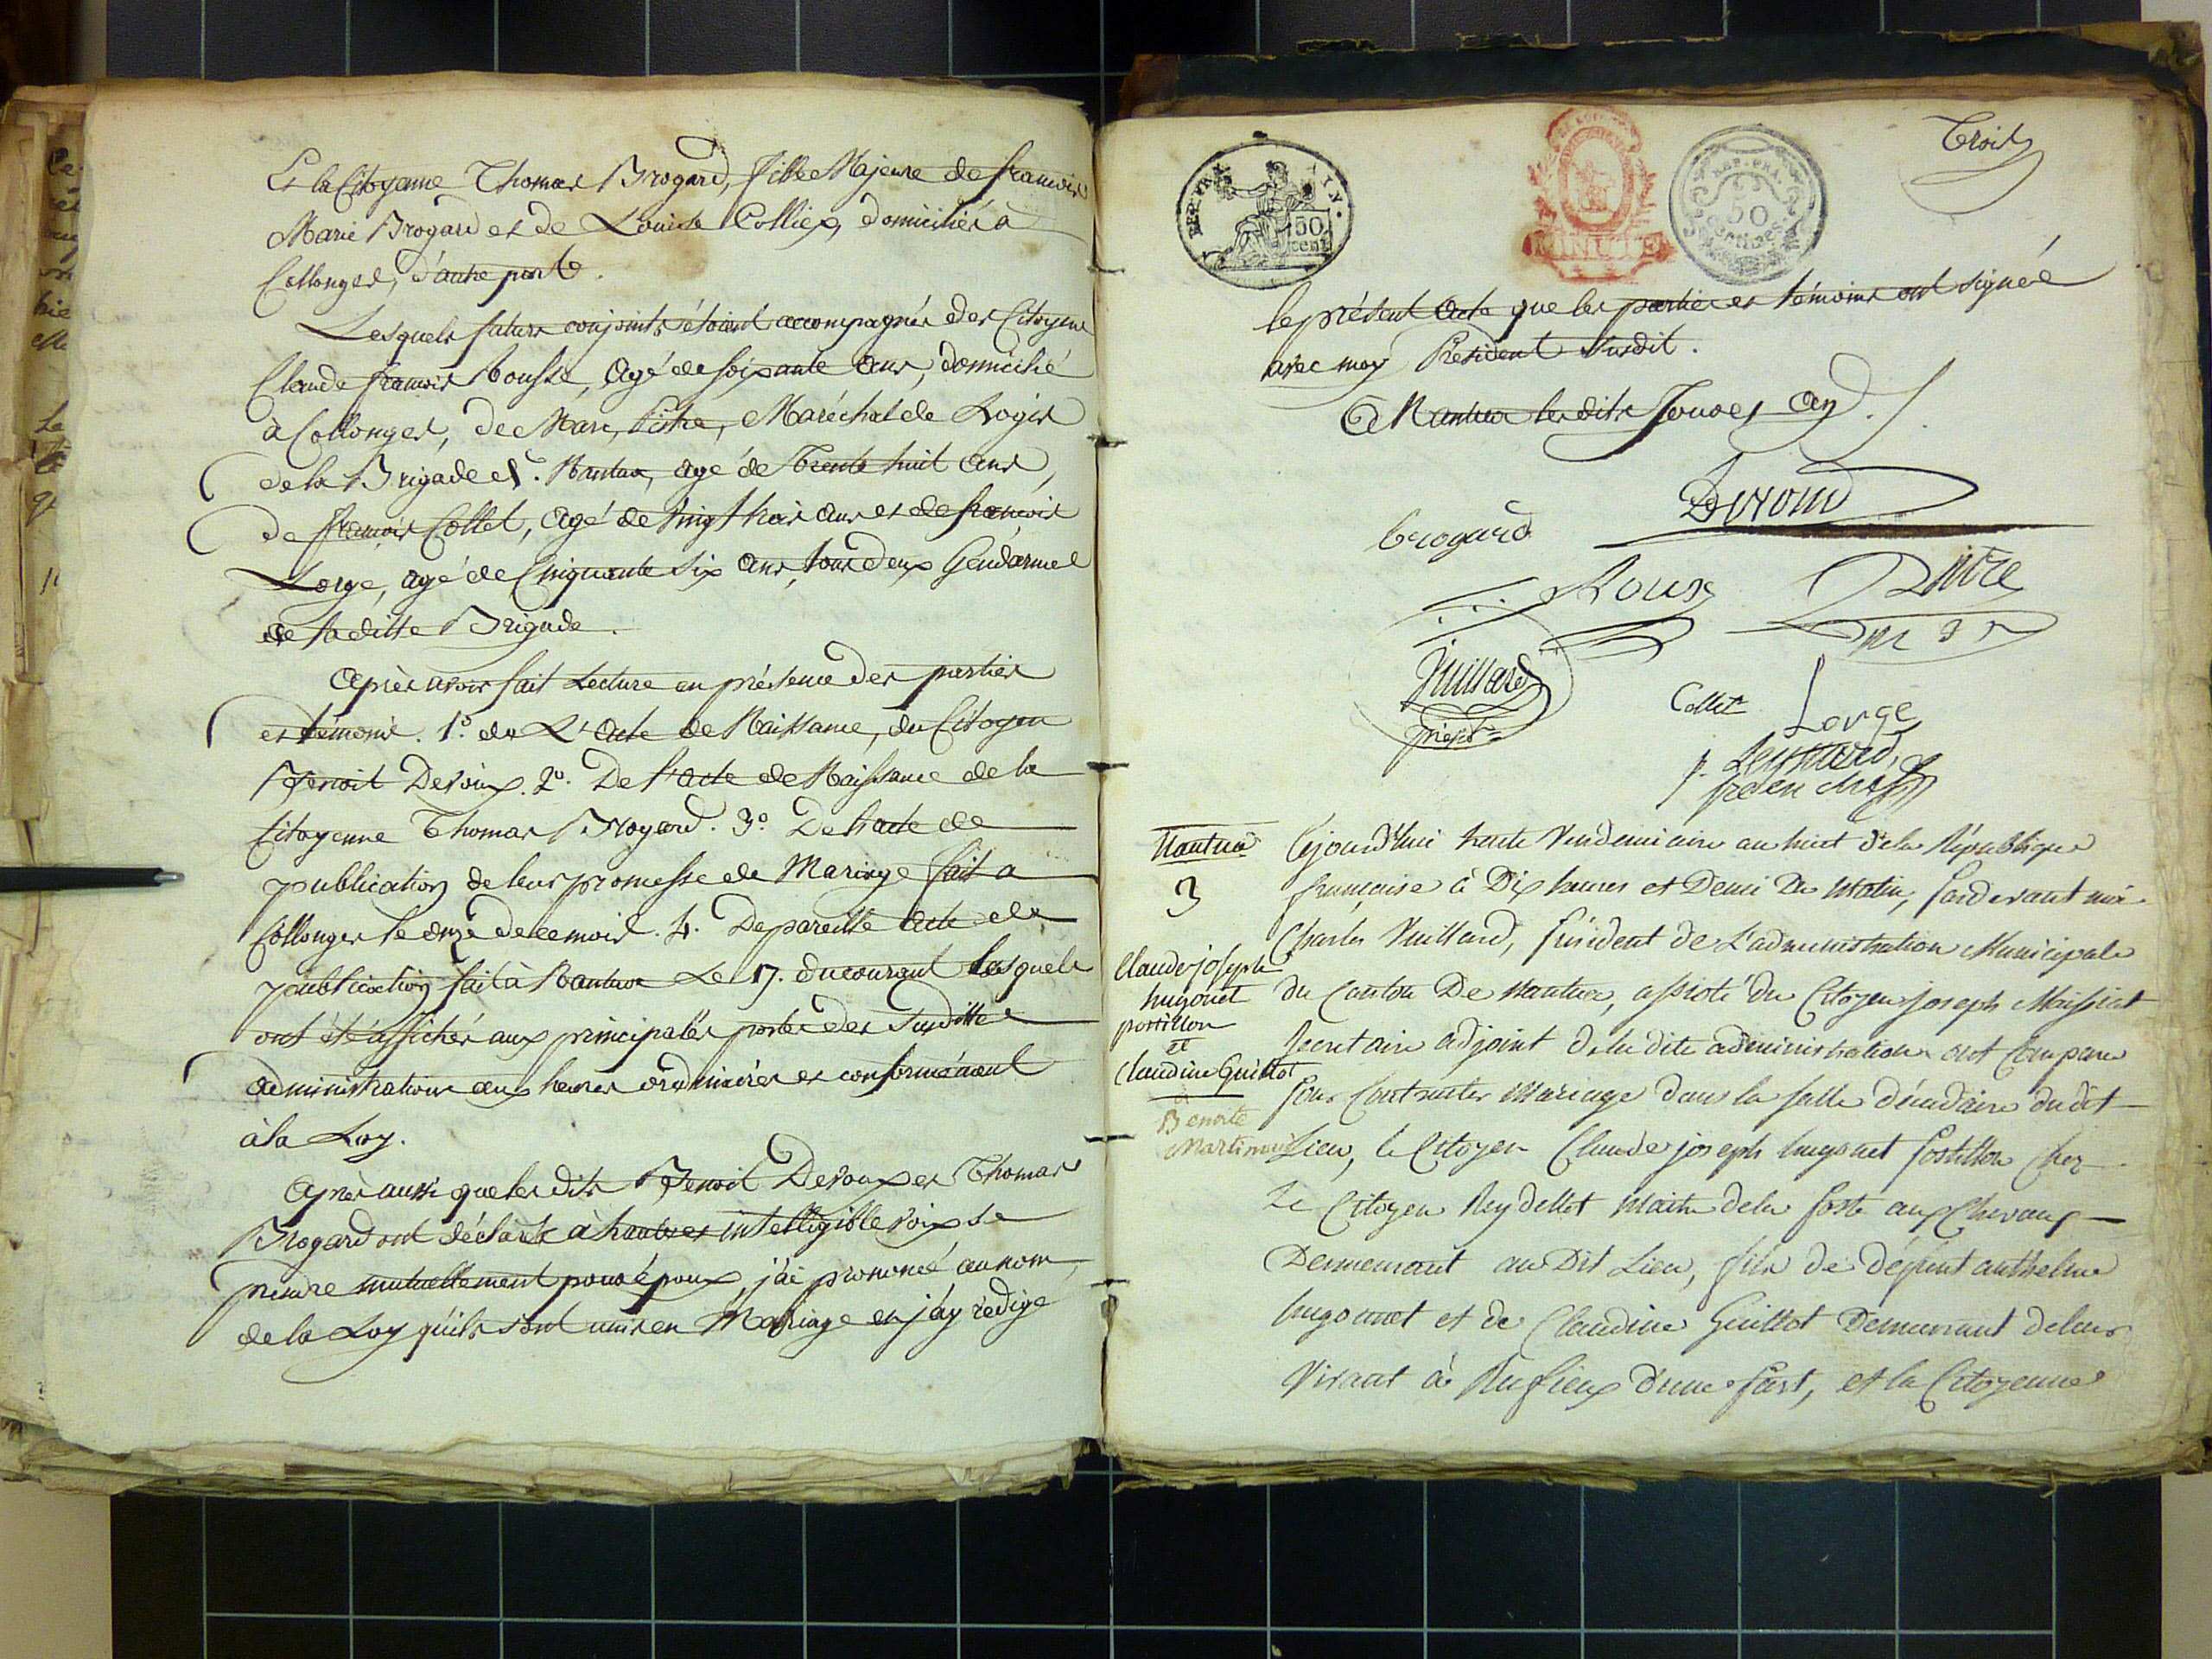 Et la Citoyenne Thomas Brogard, fille Majeure de francois
Marie Brogard et de Louise Colliex, domiciliés à
Collonges, d'autre part.
Lesquels futurs conjoints étoient accompagnés des Citoyens
Claude francois Rousse, agé de soixante ans, domicilié
à Collonges, de Marc Pitre, Maréchal de Logis
de la Brigade de Nantua, agé de trente huit ans,
de françois Collet, agé de vingt trois ans et de francois
Lorge, agé de Cinquante six ans, tous deux Gendarmes
de laditte Brigade.
Après avoir fait Lecture en présence des parties
et témoins. 1.° de L'acte de Naissance, du Citoyen
Benoit Devoux. 2.° De l'acte de Naissance de la
Citoyenne Thomas Brogard. 3.° De l'acte de
publication de leur promesse de Mariage fait a
Collonges le onze de ce mois. 4. De pareille acte de
publication fait à Nantua Le 17. du courant Lesquels
ont été affichés aux principales portes des Susdittes
administrations aux heures ordinaires et conformément
à la Loy.
Après aussi que lesdits Benoit Devoux et Thomas
Brogard ont déclaré à haute et intelligible voix se
prendre mutuellement pour époux, j'ai prononcé au nom
de la Loy qu'ils sont unis en Mariage et j'ay rédigé
REP. FRA.
50
cent
MINUTE
REP. FRA.
50
centimes
Trois
le présent acte que les parties et témoins ont signées
avec moy Président Susdit.
A Nantua lesdits Jours et an
Brogard
Roux
Pitre
Vuillard
Présidt
Collet
Lorge
Nantua
3
Claude joseph
hugonet
postillon
et
Claudine Guillot
Benoite
Cejourd'hui trente Vendemiaire an huit de la République
française à Dix heures et Demi Du Matin, Pardevant moi
Charles Vuillard, Président de L'administration Municipale
du Canton De Nantua, assisté du Citoyen joseph Maissiat
Secretaire adjoint de la dite administration ont Comparu
Pour Contracter Mariage dans la Salle décadaire du dit
Lieu, le Citoyen Claude joseph hugonet Postillon Chez
Le Citoyen Reydellet Maitre de la Poste aux Chevaux
Demeurant au Dit Lieu, fils de défunt anthelme
hugonnet et de Claudine Guillot Demeurant de leur
Vivant à Rufieux D'une Part, et la Citoyenne